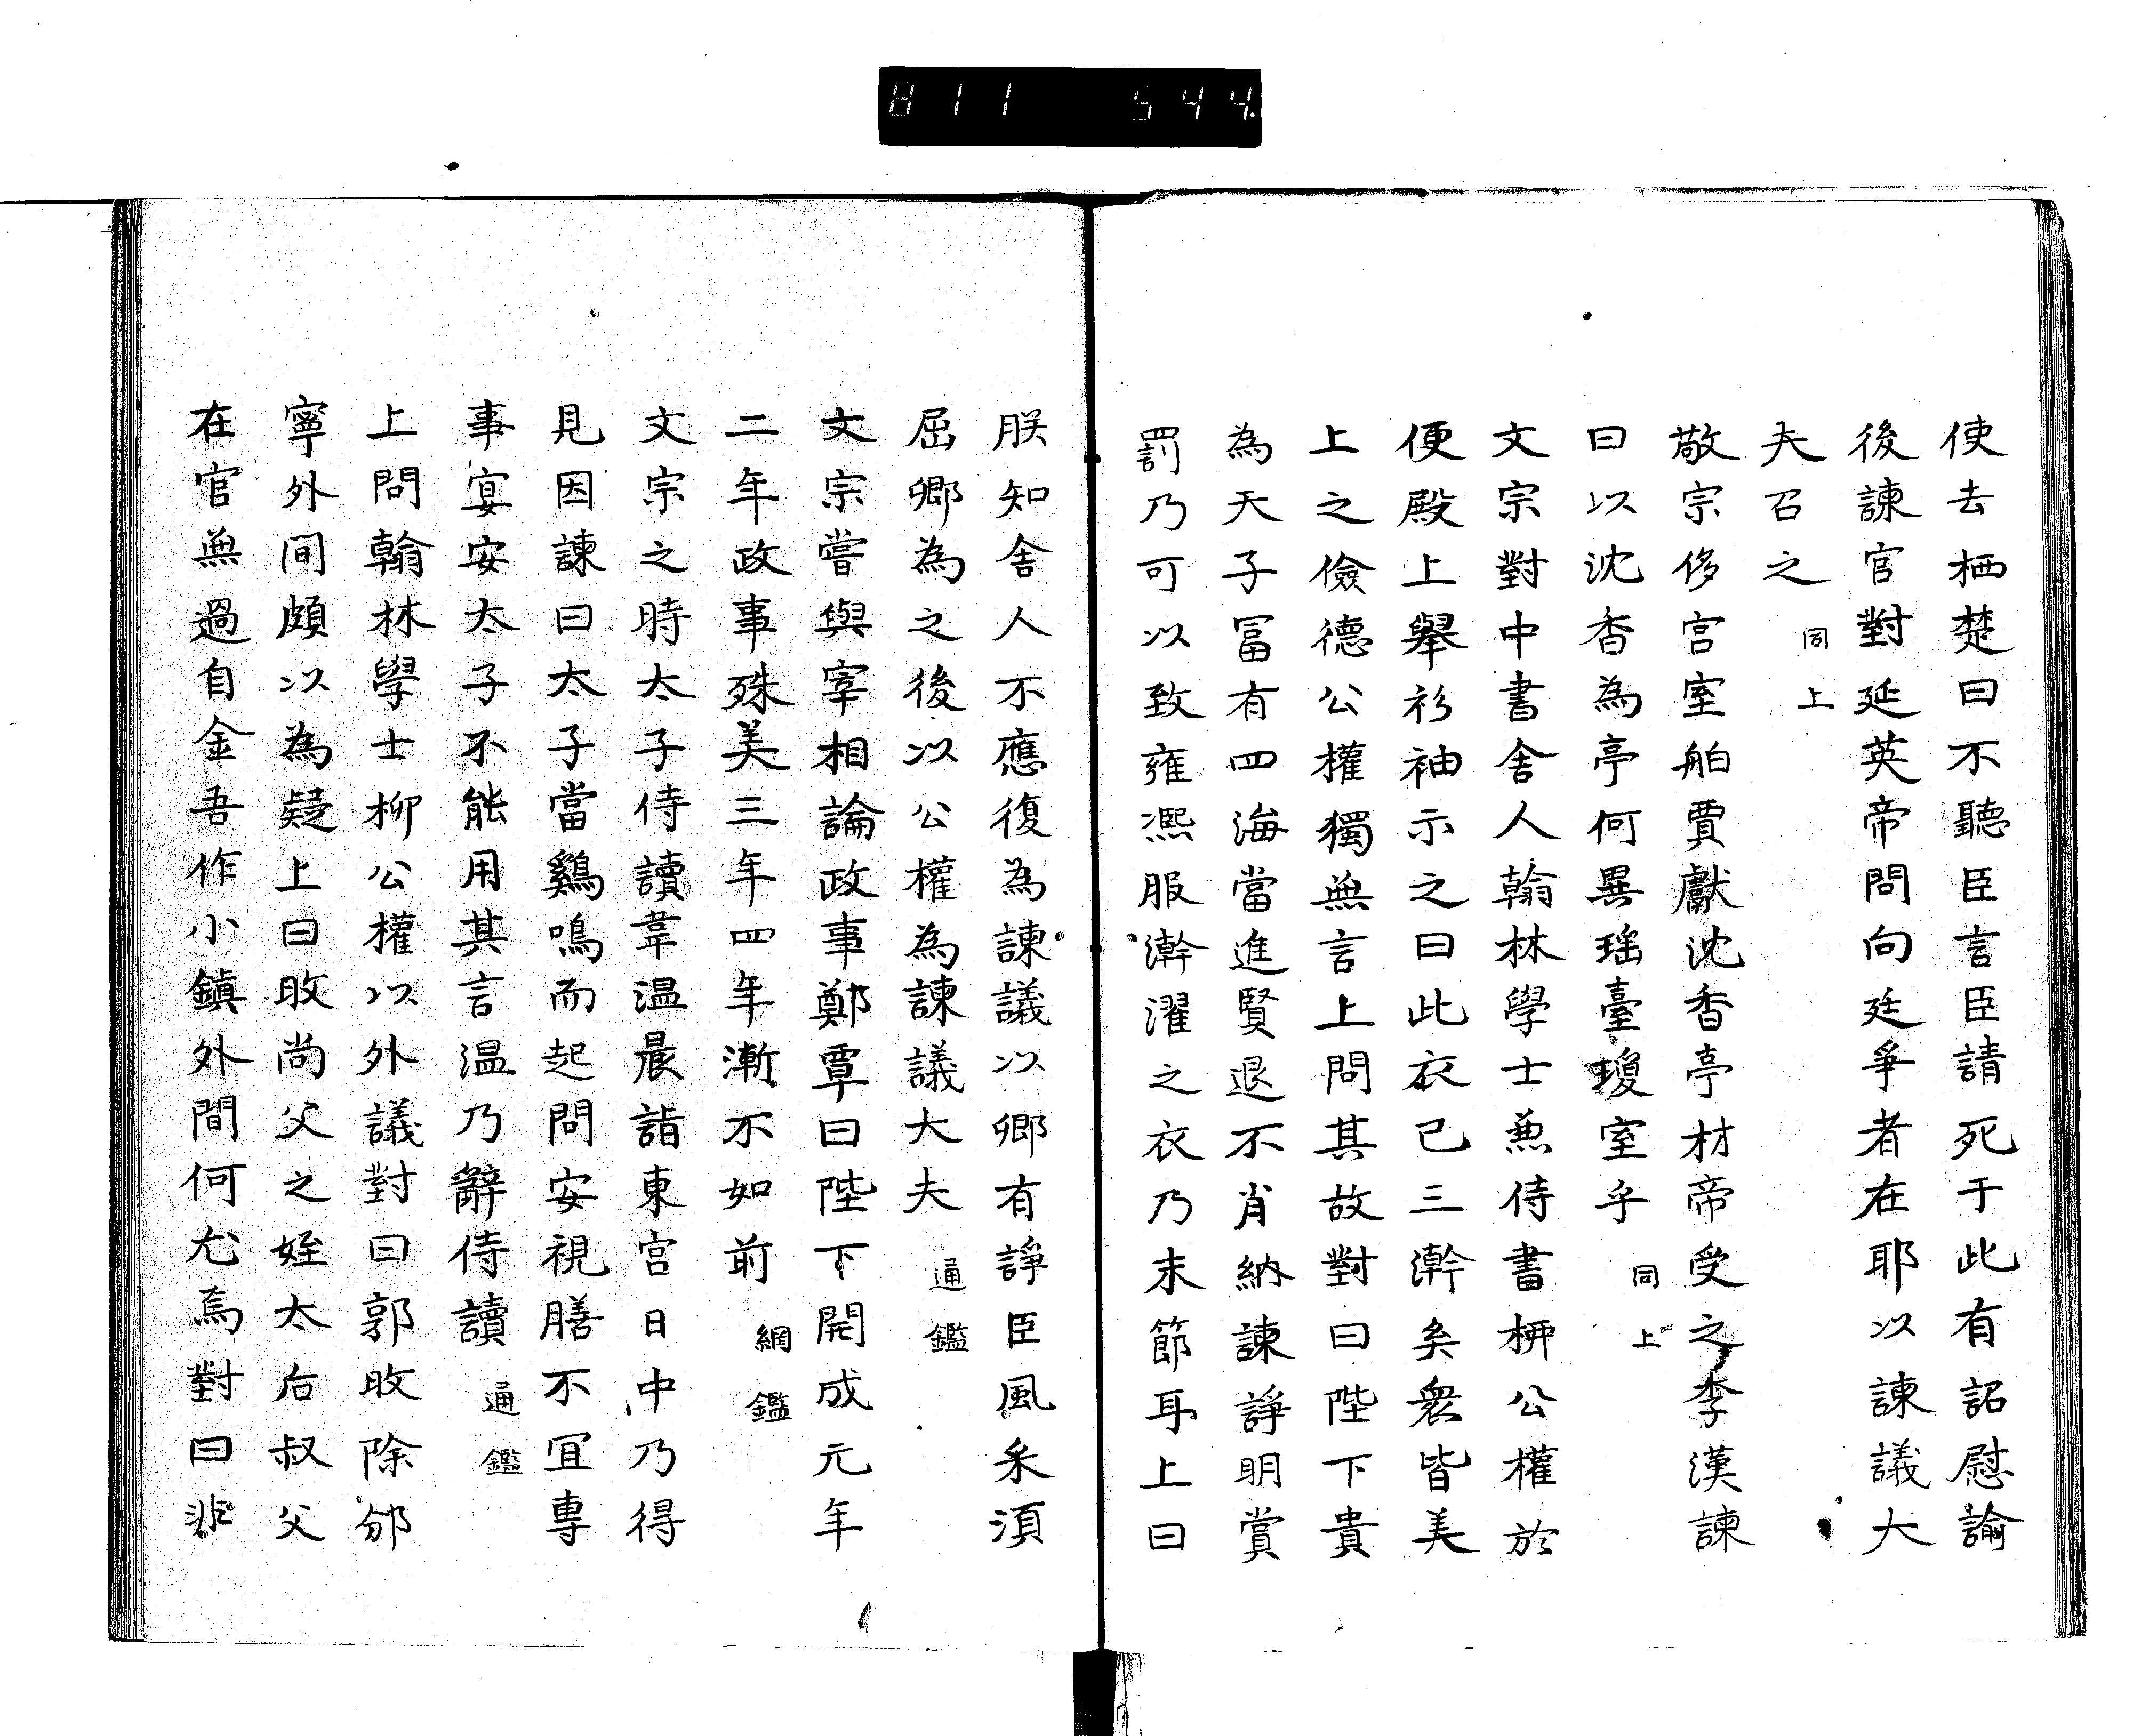 811 544.
使去栖楚曰不聽臣言臣請死于此有詔慰諭
後諫官對延英帝問向廷爭者在耶以諫議大
夫召之 同上
敬宗侈宮室舶賈獻沈香亭材帝受之李漢諫
曰以沈香為亭何異瑤臺瓊室乎 同上
文宗對中書舍人翰林學士兼侍書柳公權於
便殿上舉衫袖示之曰此衣已三澣矣衆皆美
上之儉德公權獨無言上問其故對曰陛下貴
為天子冨有四海當進賢退不肖納諫諍明賞
罰乃可以致雍凞服澣濯之衣乃末節耳上曰
朕知舍人不應復為諫議以卿有諍臣風采湏
屈卿為之後以公權為諫議大夫 通鑑
文宗嘗與宰相論政事鄭覃曰陛下開成元年
二年政事殊美三年四年漸不如前 綱鑑
文宗之時太子侍讀韋温晨詣東宮日中乃得
見因諫曰太子當鷄鳴而起問安視膳不宜專
事宴安太子不能用其言温乃辭侍讀 通鑑
上問翰林學士柳公權以外議對曰郭旼除邠
寧外間頗以為疑上曰旼尚父之姪太后叔父
在官無過自金吾作小鎮外間何尤焉對曰非